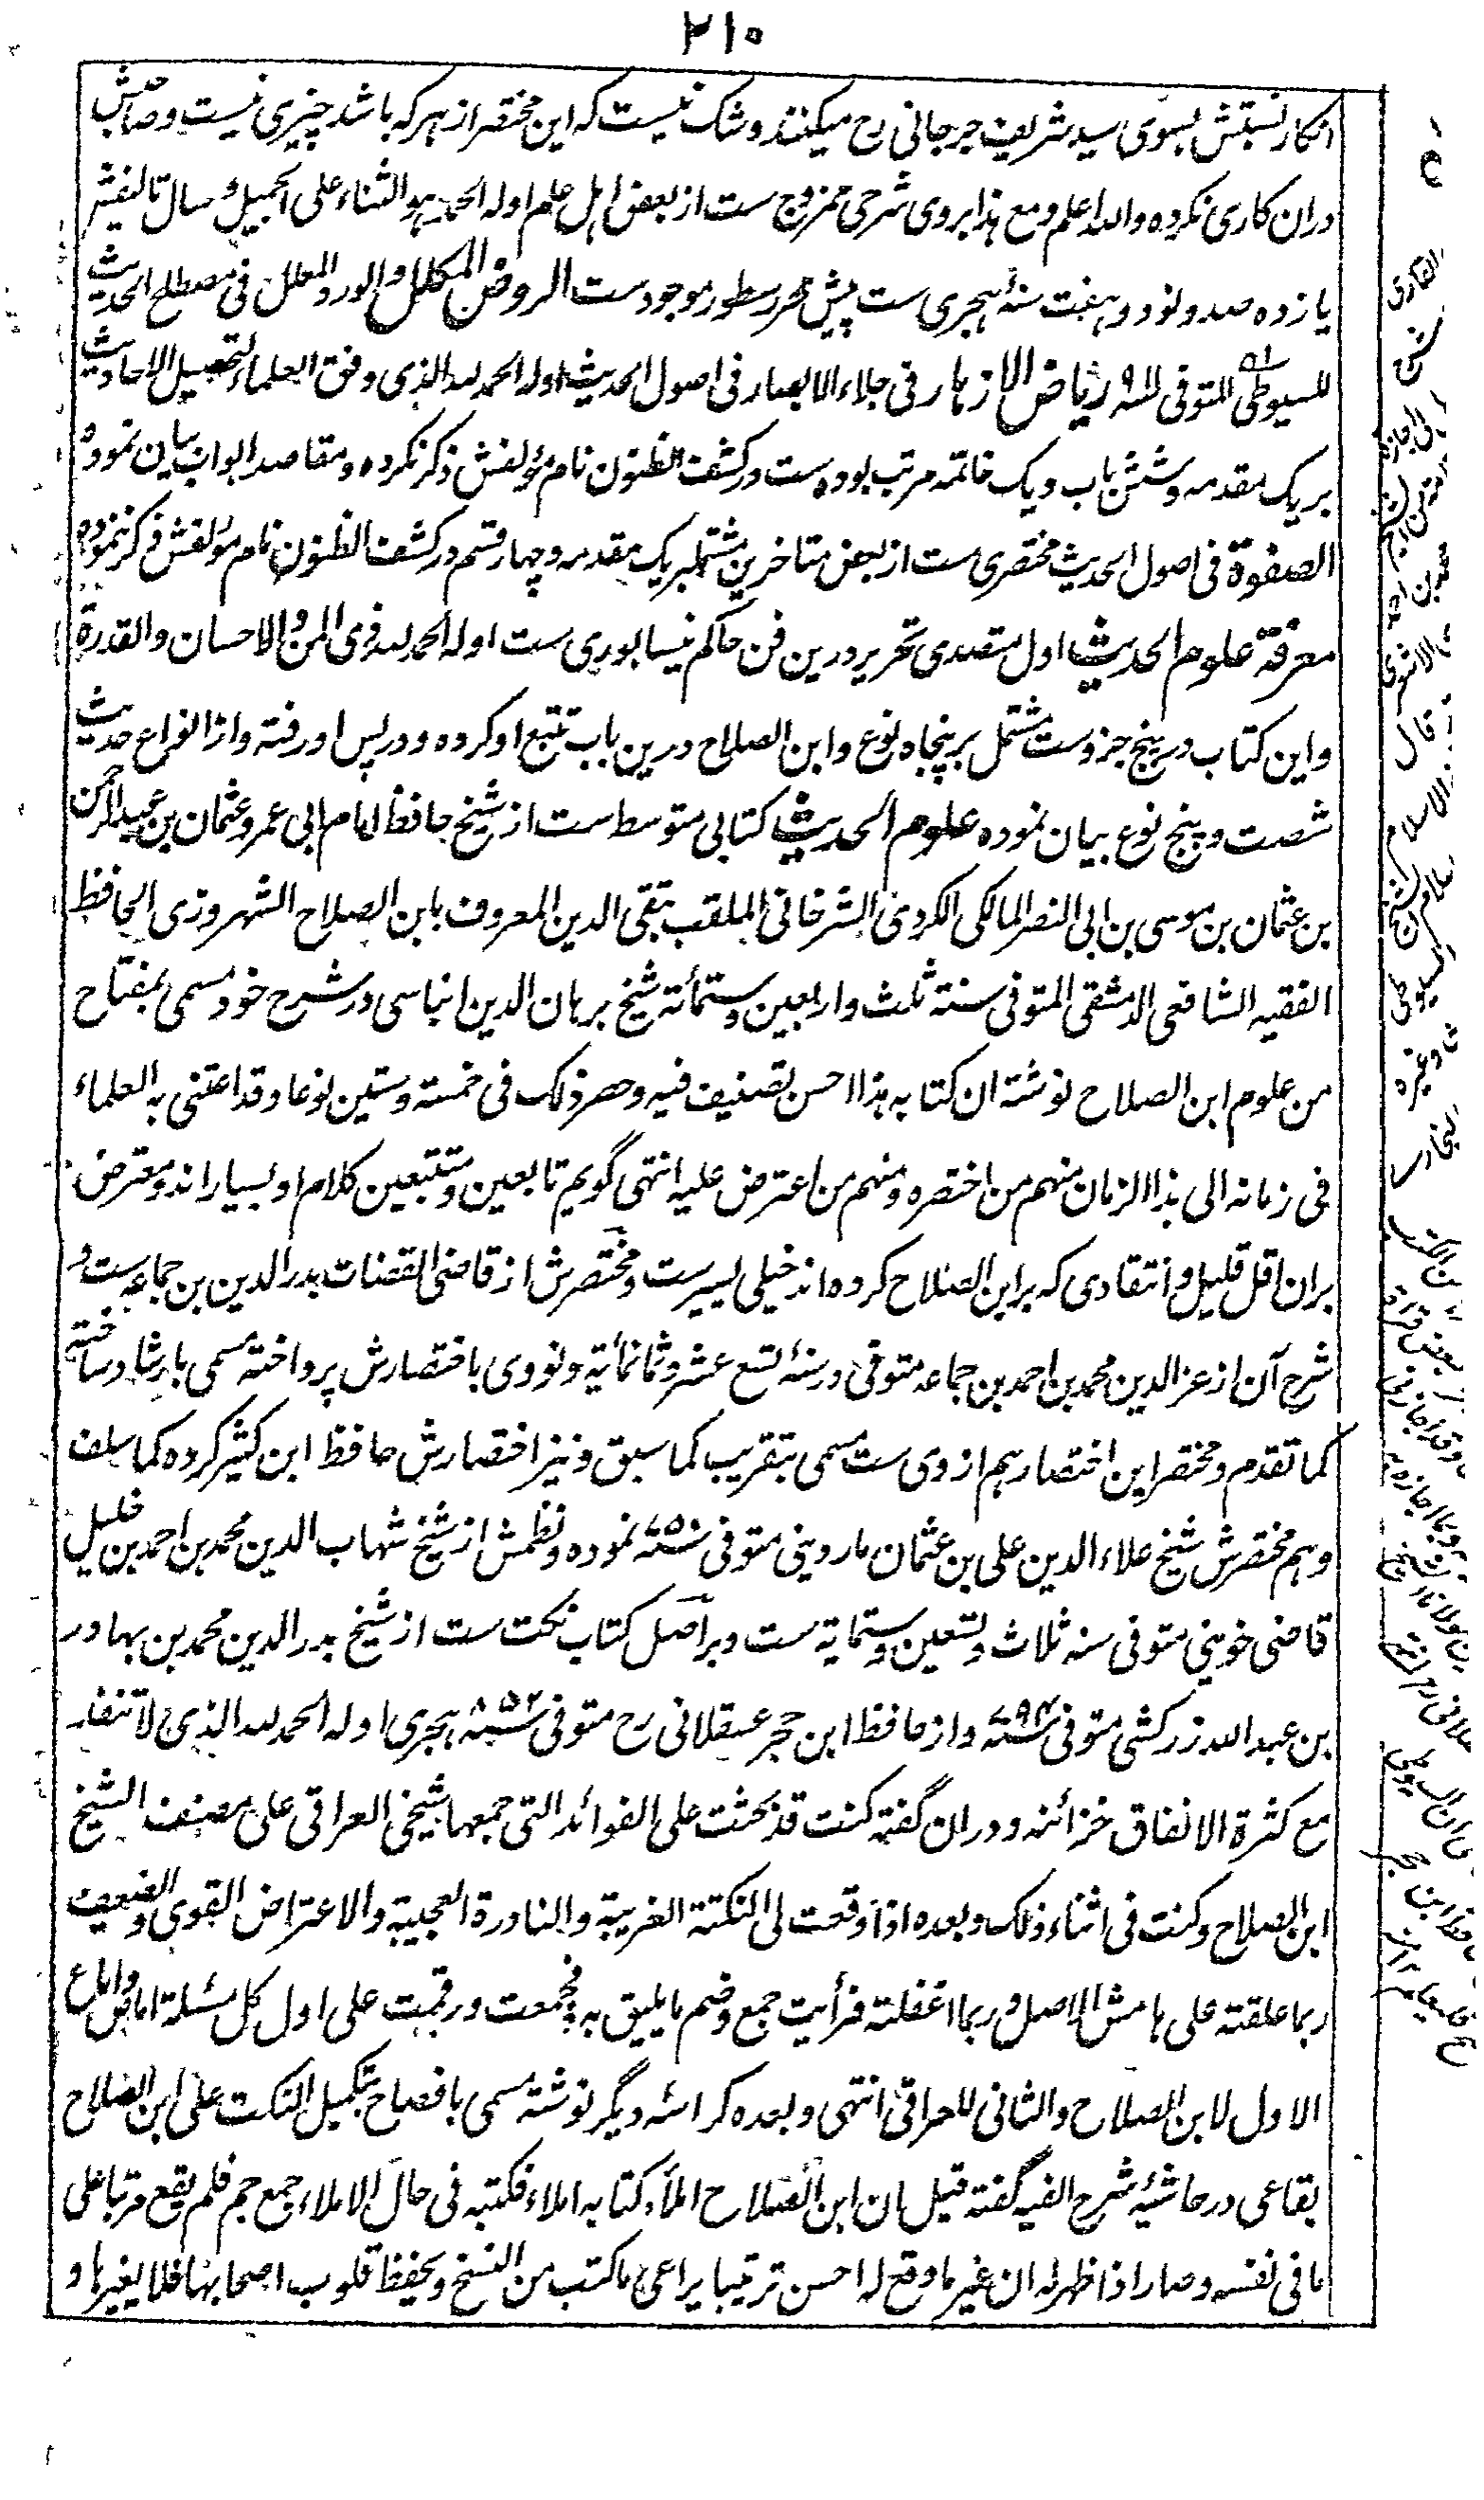 ۲۱۰
انکار نسبتش بسوی سید شریف جرجانی رح میکنند و شک نیست که این مختصر از هر که باشد چیزی نیست و صاحبش
دران کاری نکرده والله اعلم و مع هذا بروی شرحی ممزوج ست از بعض اهل علم اوله الحمد لله والثناء علی الجمیل و سال تالیفش
یازده صد و نود و هفت سنهٔ هجری ست پیش محرر سطور موجود ست الروض المکلل والورد المعلل فی مصطلح الحدیث
للسیوطی المتوفی سنه ۹۱۱ ریاض الازهار فی جلاء الابصار فی اصول الحدیث اوله الحمد لله الذی وفق العلماء لتحصیل الاحادیث
بر یک مقدمه و شش باب و یک خاتمه مرتب بوده ست در کشف الظنون نام مؤلفش ذکر نکرده و مقاصد ابواب بیان نموده
الصفوة فی اصول الحدیث مختصری ست از بعض متاخرین مشتمل بر یک مقدمه و چهار قسم در کشف الظنون نام مؤلفش ذکر ننموده
معرفة علوم الحدیث اول متصدی تحریر درین فن حاکم نیسابوری ست اوله الحمد لله ذی المن والاحسان والقدرة
و این کتاب در پنج جزوست مشتمل بر پنجاه نوع و ابن الصلاح درین باب تتبع او کرده و در پس او رفته و از انواع حدیث
شصت و پنج نوع بیان نموده علوم الحدیث کتابی متوسط ست از شیخ حافظ امام ابی عمرو عثمان بن عبد الرحمن
بن عثمان بن موسی بن ابی النصر المالکی الکردی الشرخانی الملقب بتقی الدین المعروف بابن الصلاح الشهروزی الحافظ
الفقیه الشافعی الدمشقی المتوفی سنة ثلث واربعین وستمائة شیخ برهان الدین ابناسی در شرح خود مسمی بمفتاح
من علوم ابن الصلاح نوشته ان کتابه هذا احسن تصنیف فیه و حصر ذلک فی خمسة وستین نوعا وقد اعتنی به العلماء
فی زمانه الی هذا الزمان منهم من اختصره ومنهم من اعترض علیه انتهی گویم تابعین و متتبعین کلام او بسیار اند و معترض
بران اقل قلیل و انتقادی که بر ابن الصلاح کرده اند خیلی یسیرست و مختصرش از قاضی القضات بدر الدین بن جماعه ست و
شرح آن از عز الدین محمد بن احمد بن جماعه متوفی در سنهٔ تسع عشر وثمانمایة و نووی باختصارش پرداخته مسمی بارشاد ساخته
کما تقدم و مختصر این اختصار هم از وی ست مسمی بتقریب کما سبق و نیز اختصارش حافظ ابن کثیر کرده کما سلف
و هم مختصرش شیخ علاء الدین علی بن عثمان ماردینی متوفی سنه ۷۵۰ نموده و نظمش از شیخ شهاب الدین محمد بن احمد بن خلیل
قاضی خوینی متوفی سنه ثلاث و تسعین وستمایة ست و بر اصل کتاب نکت ست از شیخ بدر الدین محمد بن بهادر
بن عبد الله زرکشی متوفی سنه ۷۹۴ و از حافظ ابن حجر عسقلانی رح متوفی سنه ۸۵۲ هجری اوله الحمد لله الذی لا تنفد
مع کثرة الانفاق خزائنه و دران گفته کنت قد بحثت علی الفوائد التی جمعها شیخی العراقی علی مصنف الشیخ
ابن الصلاح وکنت فی اثناء ذلک وبعده اذا وقعت لی النکتة الغریبة والنادرة العجیبة والاعتراض القوی والضعیف
ربما علقته علی هامش الاصل وربما اغفلته فرأیت جمع وضم ما یلیق به فجمعت ورقمت علی اول کل مسئلة اما ص واما ع
الاول لابن الصلاح والثانی للعراقی انتهی و بعده کراسهٔ دیگر نوشته مسمی بافصاح بتکمیل النکت علی ابن الصلاح
بقاعی در حاشیهٔ شرح الفیه گفته قیل ان ابن الصلاح املأ کتابه املاء فکتبه فی حال الاملاء جمع جم فلم یقع مرتبا علی
ما فی نفسه وصار اذا ظهر له ان غیر ما وقع له احسن ترتیبا یراعی ما کتب من النسخ ویحفظ قلوب اصحابها فلا یغیرها و